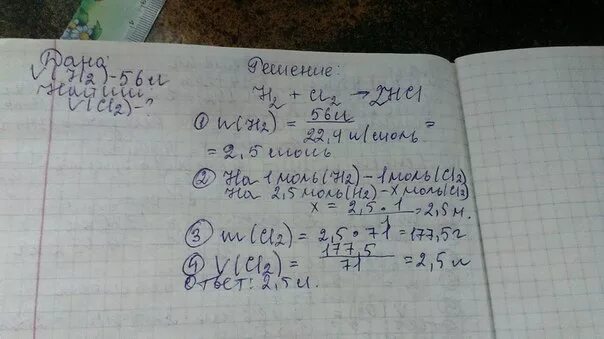 Дано:
V(H₂)-56л
Найти:
V(Cl₂)-?
Решение:
H₂ + Cl₂ → 2HCl
① n(H₂) = 56л / 22,4 л/моль =
= 2,5 моль
② На 1 моль(H₂) – 1 моль(Cl₂)
На 2,5 моль(H₂) – х моль(Cl₂)
х = 2,5 · 1 / 1 = 2,5 м.
③ m(Cl₂) = 2,5 · 71 = 177,5 г
④ V(Cl₂) = 177,5 / 71 = 2,5 л
Ответ: 2,5 л.